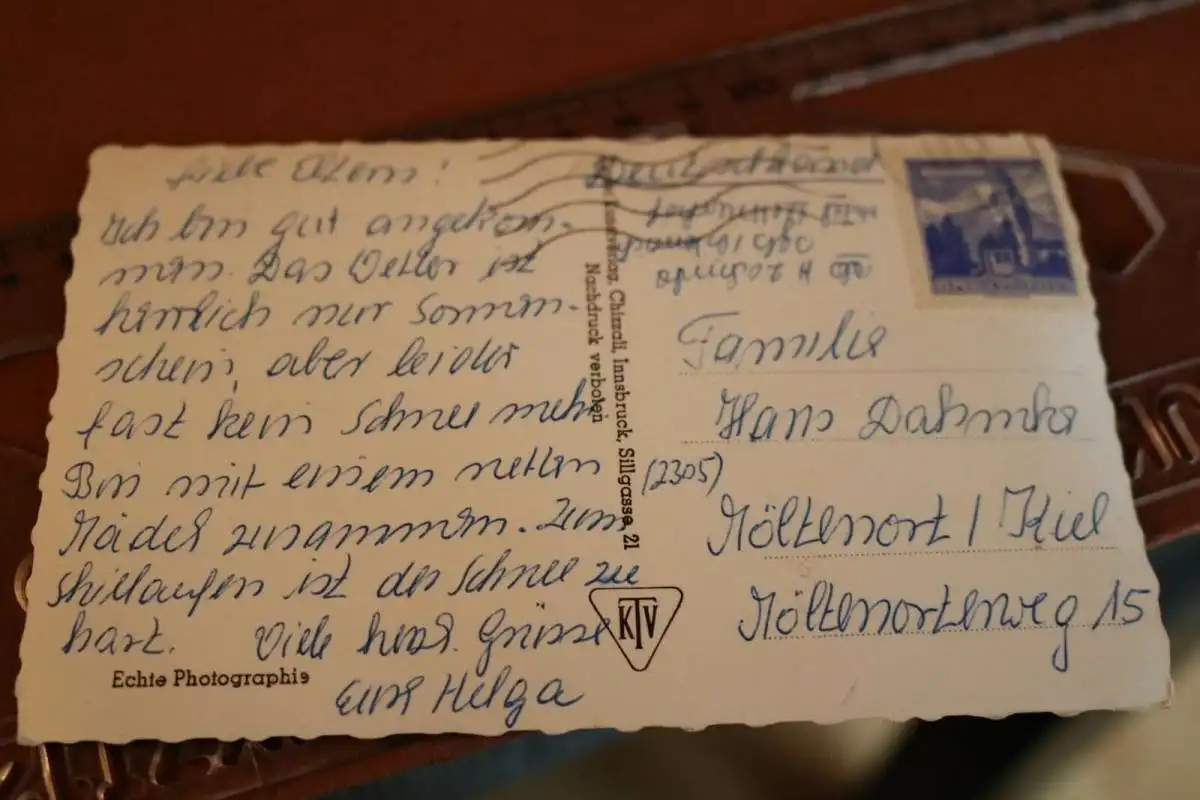 Liebe Eltern!
Ich bin gut angekom-
men. Das Wetter ist
herrlich nur Sonnen-
schein, aber leider
fast kein Schnee mehr
Bin mit einem netten
Mädel zusammen. Zum
Skilaufen ist der Schnee zu
hart. Viele herzl. Grüsse
Eure Helga
Echte Photographie
Chizzali, Innsbruck, Sillgasse, 21
Nachdruck verboten
KTV
Deutschland
Familie
Hans Dahmke
(2305)
Möltenort / Kiel
Möltenorterweg 15